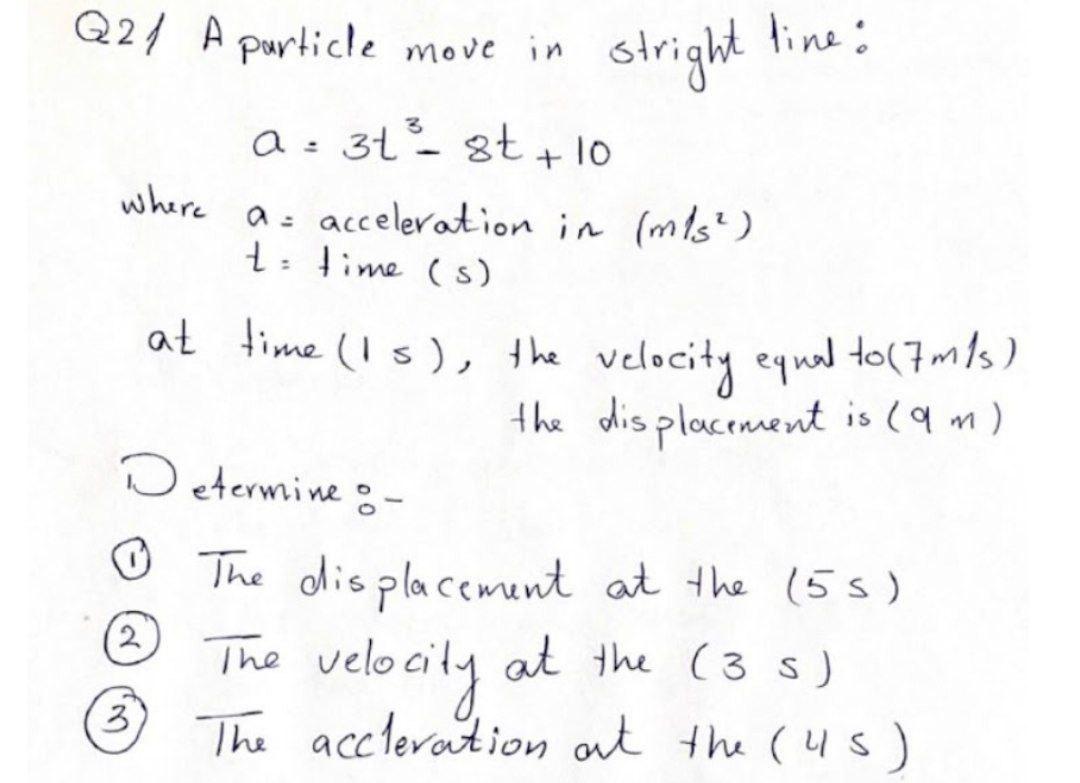 Q2/ A particle move in stright line:
a = 3t³ - 8t + 10
where a = acceleration in (m/s²)
t = time (s)
at time (1 s), the velocity equal to (7 m/s)
the displacement is (9 m)
Determine :-
① The displacement at the (5 s)
② The velocity at the (3 s)
③ The accleration at the (4 s)